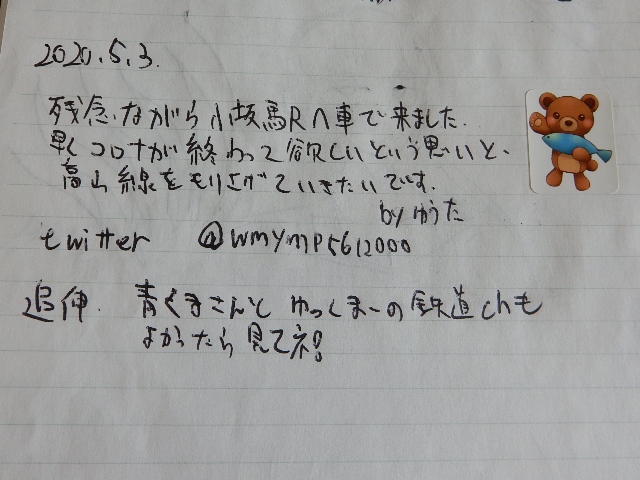 2020.5.3.
残念ながら小坂駅へ車で来ました.
早くコロナが終わって欲しいという思いと、
高山線をもりさげていきたいです.
by ゆうた
twitter @wmymp5612000
追伸. 青くまさんと ゆっくまーの鉄道chも
よかったら見てネ!